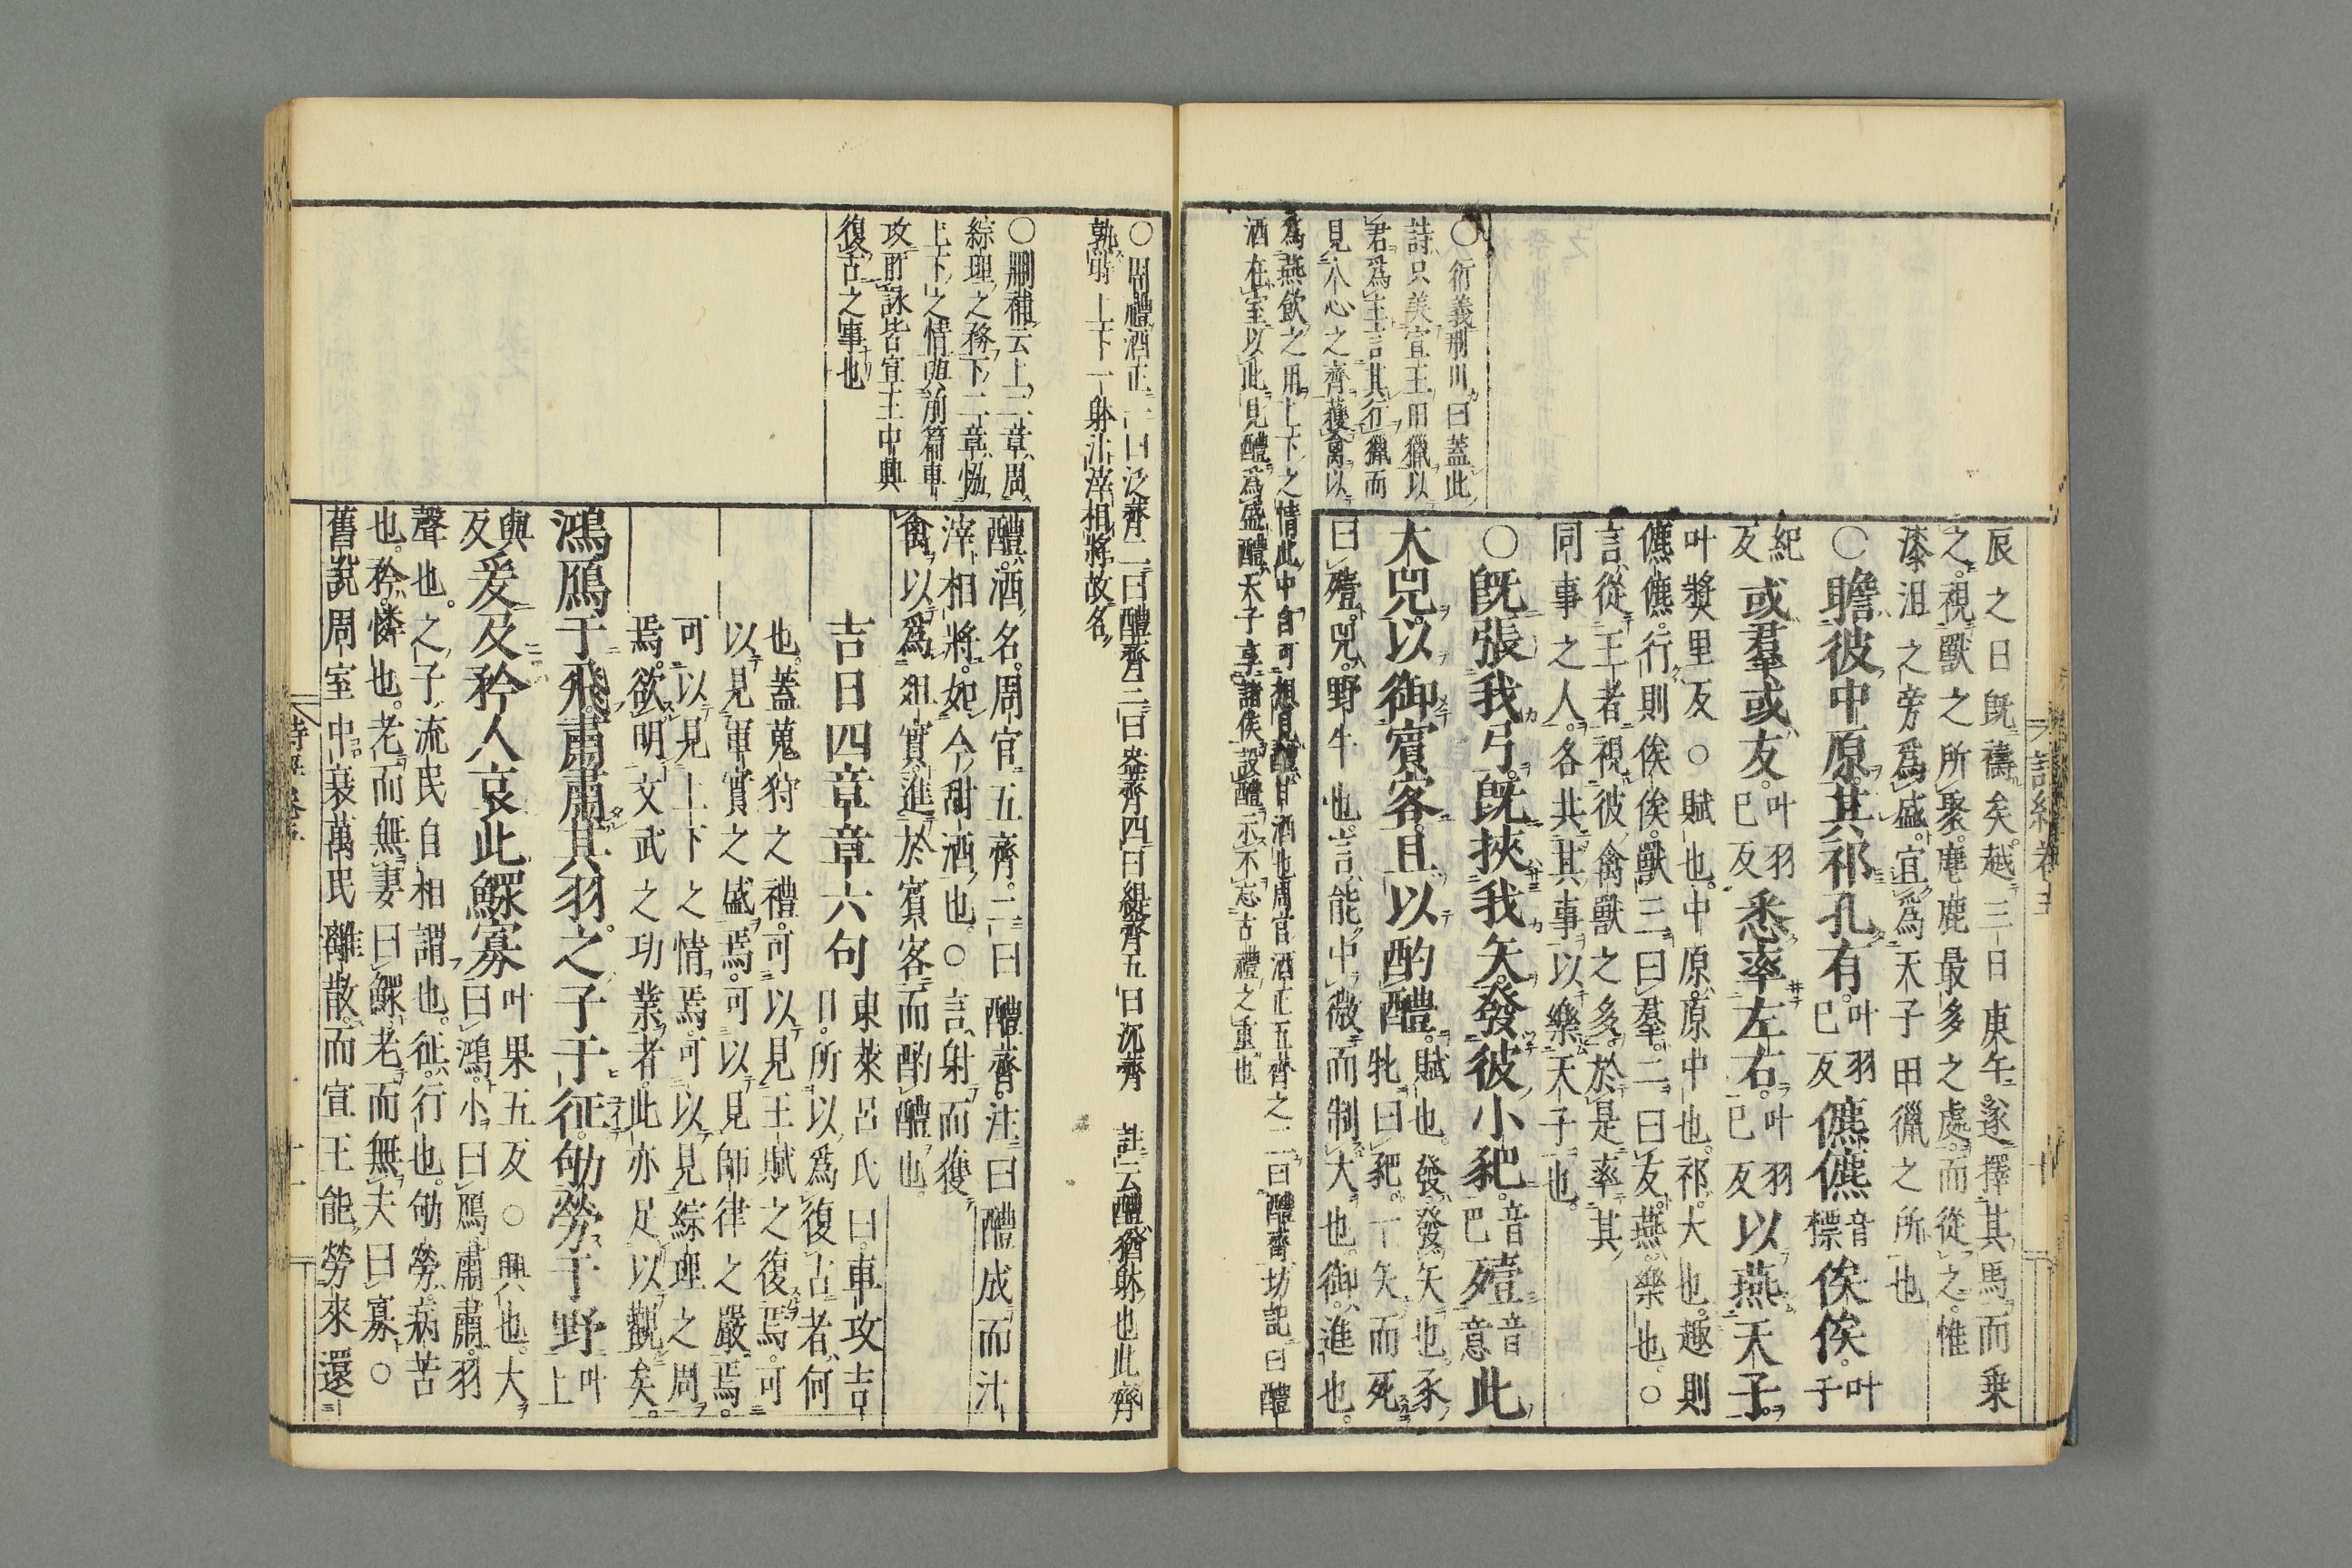 詩經卷五
○衍義荆川曰蓋此
詩只美宣王田獵以
君爲主言其行獵而
見人心之齊獲禽以
爲燕飲之用上下之情此中自可想見醴甘酒也周官酒正五齊之二曰醴齊坊記曰醴
酒在室以此見醴爲盛醴天子享諸侯設醴示不忘古禮之重也
辰之日旣禱矣越三日東午遂擇其馬而乗
之視獸之所聚麀鹿最多之處而從之惟
漆沮之旁爲盛宜爲天子田獵之所也
○瞻彼中原其祁孔有叶羽巳反儦儦音標俟俟叶于
紀反或羣或友叶羽巳反悉率左右叶羽巳反以燕天子
叶奬里反○賦也中原原中也祁大也趣則
儦儦行則俟俟獸三曰羣二曰友燕樂也○
言從王者視彼禽獸之多於是率其
同事之人各共其事以樂天子也
○旣張我弓旣挾我矢發彼小豝音巴殪音意此
大兕以御賓客且以酌醴賦也發發矢也豕牝曰豝一矢而死
曰殪兕野牛也言能中微而制大也御進也
○周禮酒正一曰泛齊二曰醴齊三曰盎齊四曰緹齊五曰沉齊 註云醴猶躰也此齊
孰時上下一躰汁滓相將故名
○刪補云上二章周
綜理之務下二章恊
上下之情與前篇車
攻所詠皆宣王中興
復古之事也
醴酒名周官五齊二曰醴齊注曰醴成而汁
滓相將如今甜酒也○言射而獲
禽以爲俎實進於賓客而酌醴也
吉日四章章六句東萊呂氏曰車攻吉日所以爲復古者何
也蓋蒐狩之禮可以見王賦之復焉可
以見軍實之盛焉可以見師律之嚴焉
可以見上下之情焉可以見綜理之周
焉欲明文武之功業者此亦足以觀矣
鴻鴈于飛肅肅其羽之子于征劬勞于野叶上
與反爰及矜人哀此鰥寡叶果五反○興也大曰鴻小曰鴈肅肅羽
聲也之子流民自相謂也征行也劬勞病苦
也矜憐也老而無妻曰鰥老而無夫曰寡○
舊說周室中衰萬民離散而宣王能勞來還
詩經 卷五 十一